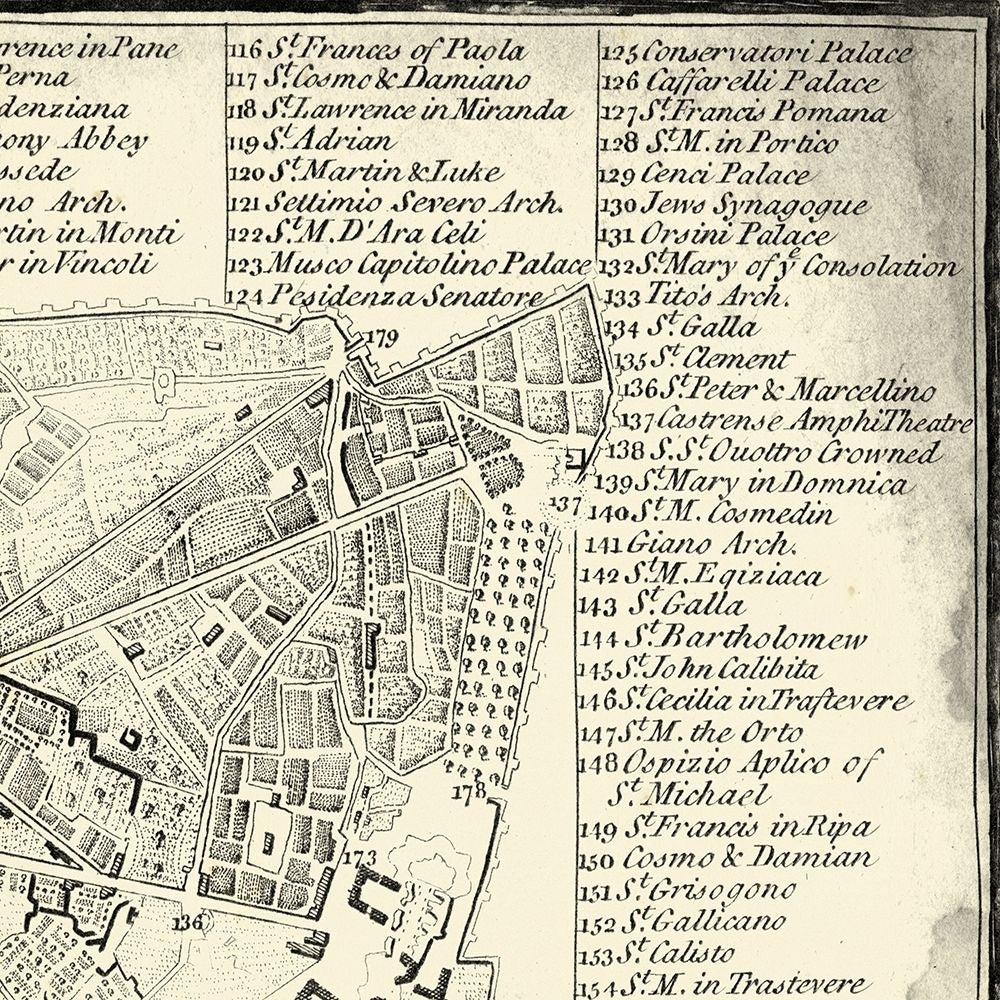 rence in Pane
Perna
denziana
ony Abbey
ssede
no Arch.
rtin in Monti
r in Vincoli
116 St. Frances of Paola
117 St. Cosmo & Damiano
118 St. Lawrence in Miranda
119 St. Adrian
120 St. Martin & Luke
121 Settimio Severo Arch.
122 St. M. D'Ara Celi
123 Musco Capitolino Palace
124 Pesidenza Senatore
125 Conservatori Palace
126 Caffarelli Palace
127 St. Francis Pomana
128 St. M. in Portico
129 Cenci Palace
130 Jews Synagogue
131 Orsini Palace
132 St. Mary of ye Consolation
133 Tito's Arch.
134 St. Galla
135 St. Clement
136 St. Peter & Marcellino
137 Castrense AmphiTheatre
138 S. St. Ouottro Crowned
139 St. Mary in Domnica
140 St. M. Cosmedin
141 Giano Arch.
142 St. M. Egiziaca
143 St. Galla
144 St. Bartholomew
145 St. John Calibita
146 St. Cecilia in Traſtevere
147 St. M. the Orto
148 Ospizio Aplico of
St. Michael
149 St. Francis in Ripa
150 Cosmo & Damian
151 St. Grisogono
152 St. Gallicano
153 St. Calisto
154 St. M. in Trastevere
179
137
178
173
136